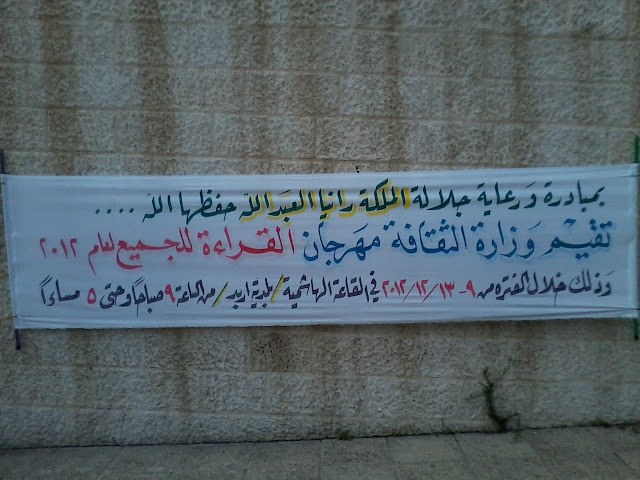 بمبادرة ورعاية جلالة الملكة رانيا العبدالله حفظها الله ....
تقيم وزارة الثقافة مهرجان القراءة للجميع لعام ٢٠١٢
وذلك خلال الفتره من ٩-٢٠١٢/١٢/١٣ في القاعة الهاشمية / بلدية اربد / من الساعة ٩ صباحاً وحتى ٥ مساءاً